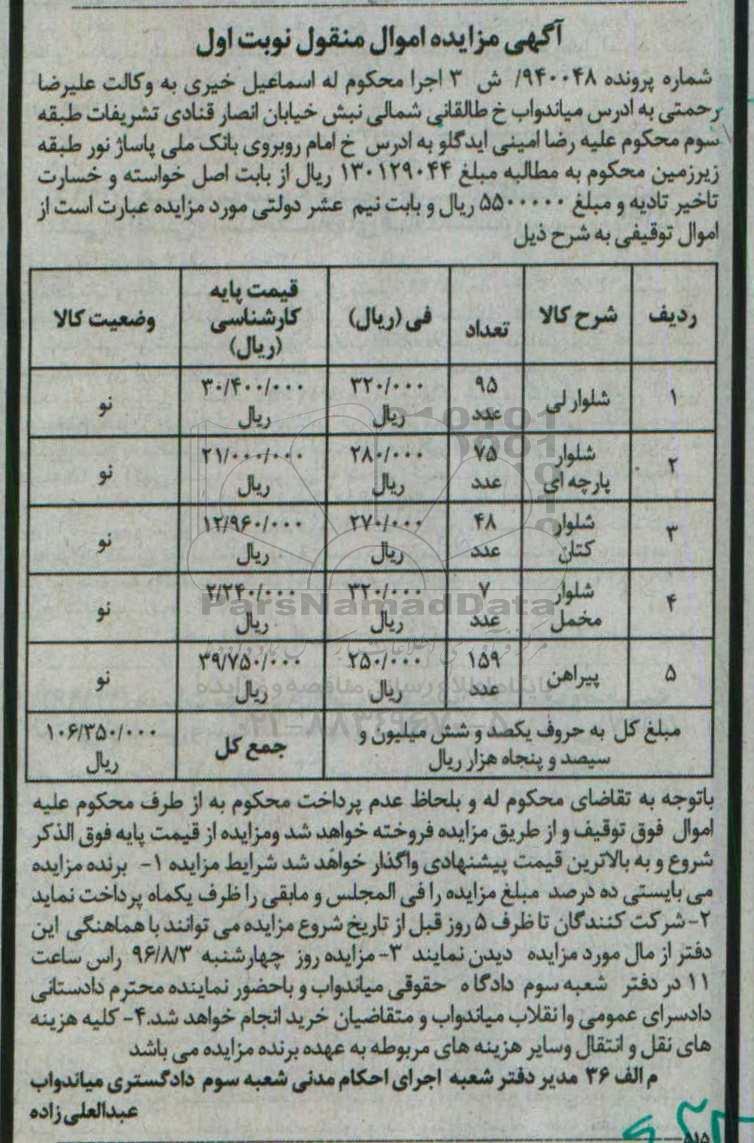 آگهی مزایده اموال منقول نوبت اول
شماره پرونده ۹۴۰۰۴۸/ ش ۳ اجرا محکوم له اسماعیل خیری به وکالت علیرضا
رحمتی به ادرس میاندواب خ طالقانی شمالی نبش خیابان انصار قنادی تشریفات طبقه
سوم محکوم علیه رضا امینی ایدگلو به ادرس خ امام روبروی بانک ملی پاساژ نور طبقه
زیرزمین محکوم به مطالبه مبلغ ۱۳۰۱۲۹۰۴۴ ریال از بابت اصل خواسته و خسارت
تاخیر تادیه و مبلغ ۵۵۰۰۰۰۰ ریال و بابت نیم عشر دولتی مورد مزایده عبارت است از
اموال توقیفی به شرح ذیل
ردیف شرح کالا تعداد فی (ریال) قیمت پایه کارشناسی (ریال) وضعیت کالا
۱ شلوار لی ۹۵ عدد ۳۲۰/۰۰۰ ریال ۳۰/۴۰۰/۰۰۰ ریال نو
۲ شلوار پارچه ای ۷۵ عدد ۲۸۰/۰۰۰ ریال ۲۱/۰۰۰/۰۰۰ ریال نو
۳ شلوار کتان ۴۸ عدد ۲۷۰/۰۰۰ ریال ۱۲/۹۶۰/۰۰۰ ریال نو
۴ شلوار مخمل ۷ عدد ۳۲۰/۰۰۰ ریال ۲/۲۴۰/۰۰۰ ریال نو
۵ پیراهن ۱۵۹ عدد ۲۵۰/۰۰۰ ریال ۳۹/۷۵۰/۰۰۰ ریال نو
مبلغ کل به حروف یکصد و شش میلیون و سیصد و پنجاه هزار ریال جمع کل ۱۰۶/۳۵۰/۰۰۰ ریال
باتوجه به تقاضای محکوم له و بلحاظ عدم پرداخت محکوم به از طرف محکوم علیه
اموال فوق توقیف و از طریق مزایده فروخته خواهد شد ومزایده از قیمت پایه فوق الذکر
شروع و به بالاترین قیمت پیشنهادی واگذار خواهد شد شرایط مزایده ۱- برنده مزایده
می بایستی ده درصد مبلغ مزایده را فی المجلس و مابقی را ظرف یکماه پرداخت نماید
۲-شرکت کنندگان تا ظرف ۵ روز قبل از تاریخ شروع مزایده می توانند با هماهنگی این
دفتر از مال مورد مزایده دیدن نمایند ۳- مزایده روز چهارشنبه ۹۶/۸/۳ راس ساعت
۱۱ در دفتر شعبه سوم دادگاه حقوقی میاندواب و باحضور نماینده محترم دادستانی
دادسرای عمومی وا نقلاب میاندواب و متقاضیان خرید انجام خواهد شد.۴- کلیه هزینه
های نقل و انتقال وسایر هزینه های مربوطه به عهده برنده مزایده می باشد
م الف ۳۶ مدیر دفتر شعبه اجرای احکام مدنی شعبه سوم دادگستری میاندواب
عبدالعلی زاده
ParsNamadData